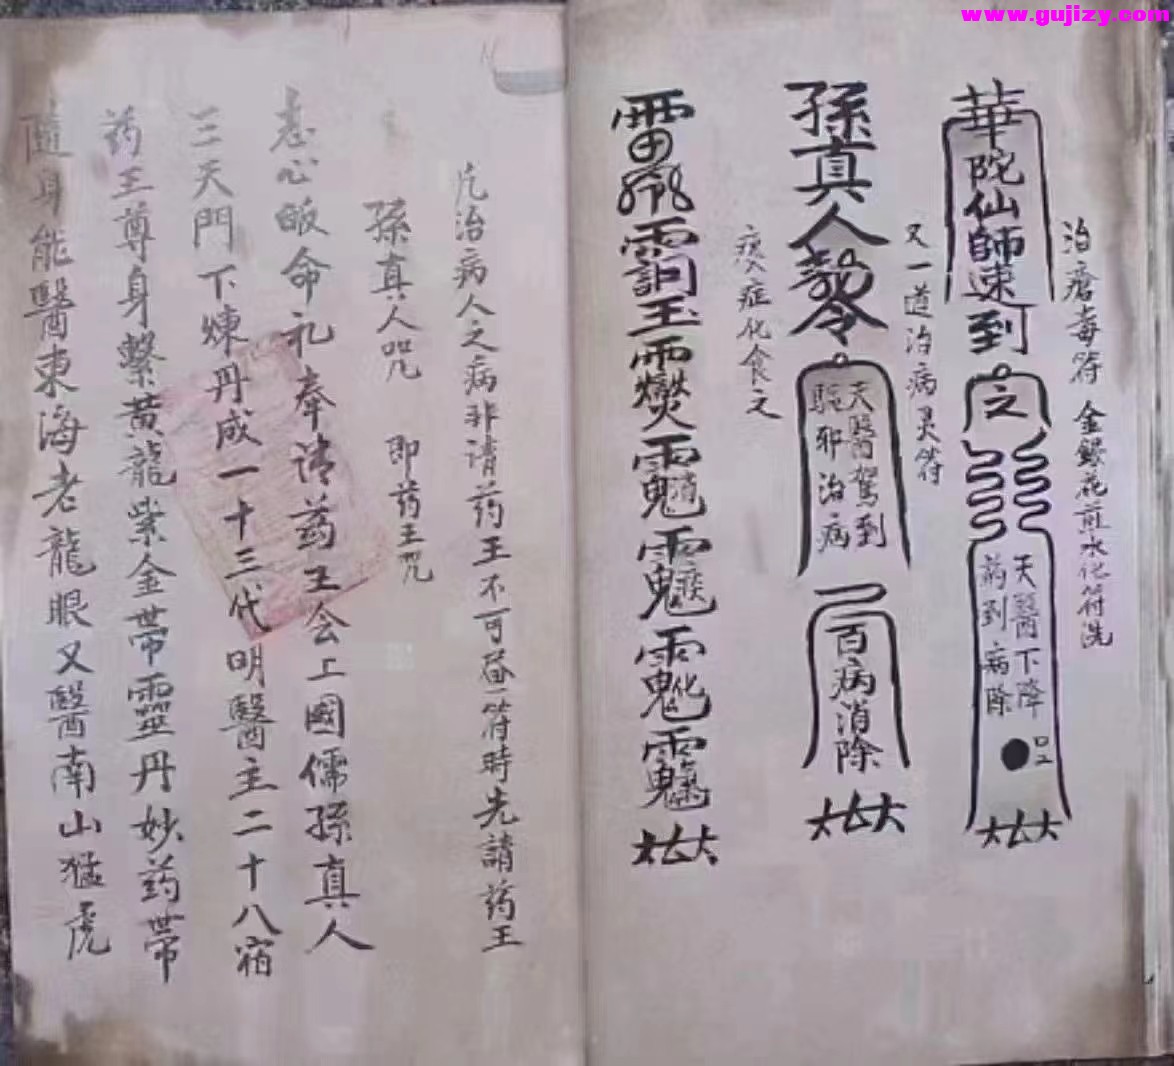 www.gujizy.com
治瘡毒符 金銀花煎水化符洗
華陀仙師速到
之
天醫下降
病到病除
又一道治病灵符
孫真人勅令
天醫駕到
駈邪治病
百病消除
痰症化食之
凢治病人之病非请药王不可畨一符時先請药王
孫真人咒 即药王咒
志心皈命礼奉请药王会上國儒孫真人
三天門下煉丹成一十三代明醫主二十八宿
药王尊身繫黃龍紫金带靈丹妙药带
隨身能醫東海老龍眼又醫南山猛虎